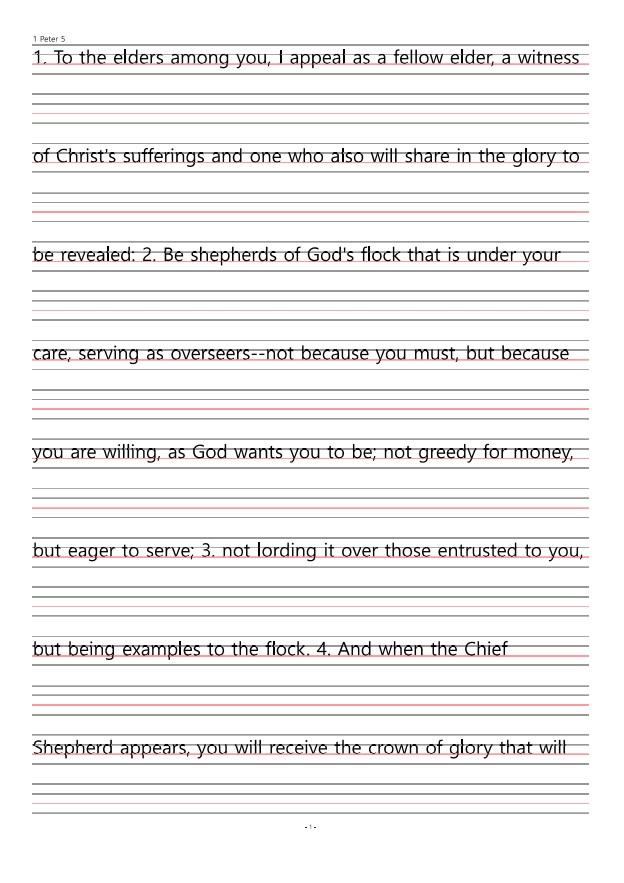 1 Peter 5
1. To the elders among you, I appeal as a fellow elder, a witness
of Christ's sufferings and one who also will share in the glory to
be revealed: 2. Be shepherds of God's flock that is under your
care, serving as overseers--not because you must, but because
you are willing, as God wants you to be; not greedy for money,
but eager to serve; 3. not lording it over those entrusted to you,
but being examples to the flock. 4. And when the Chief
Shepherd appears, you will receive the crown of glory that will
- 1 -